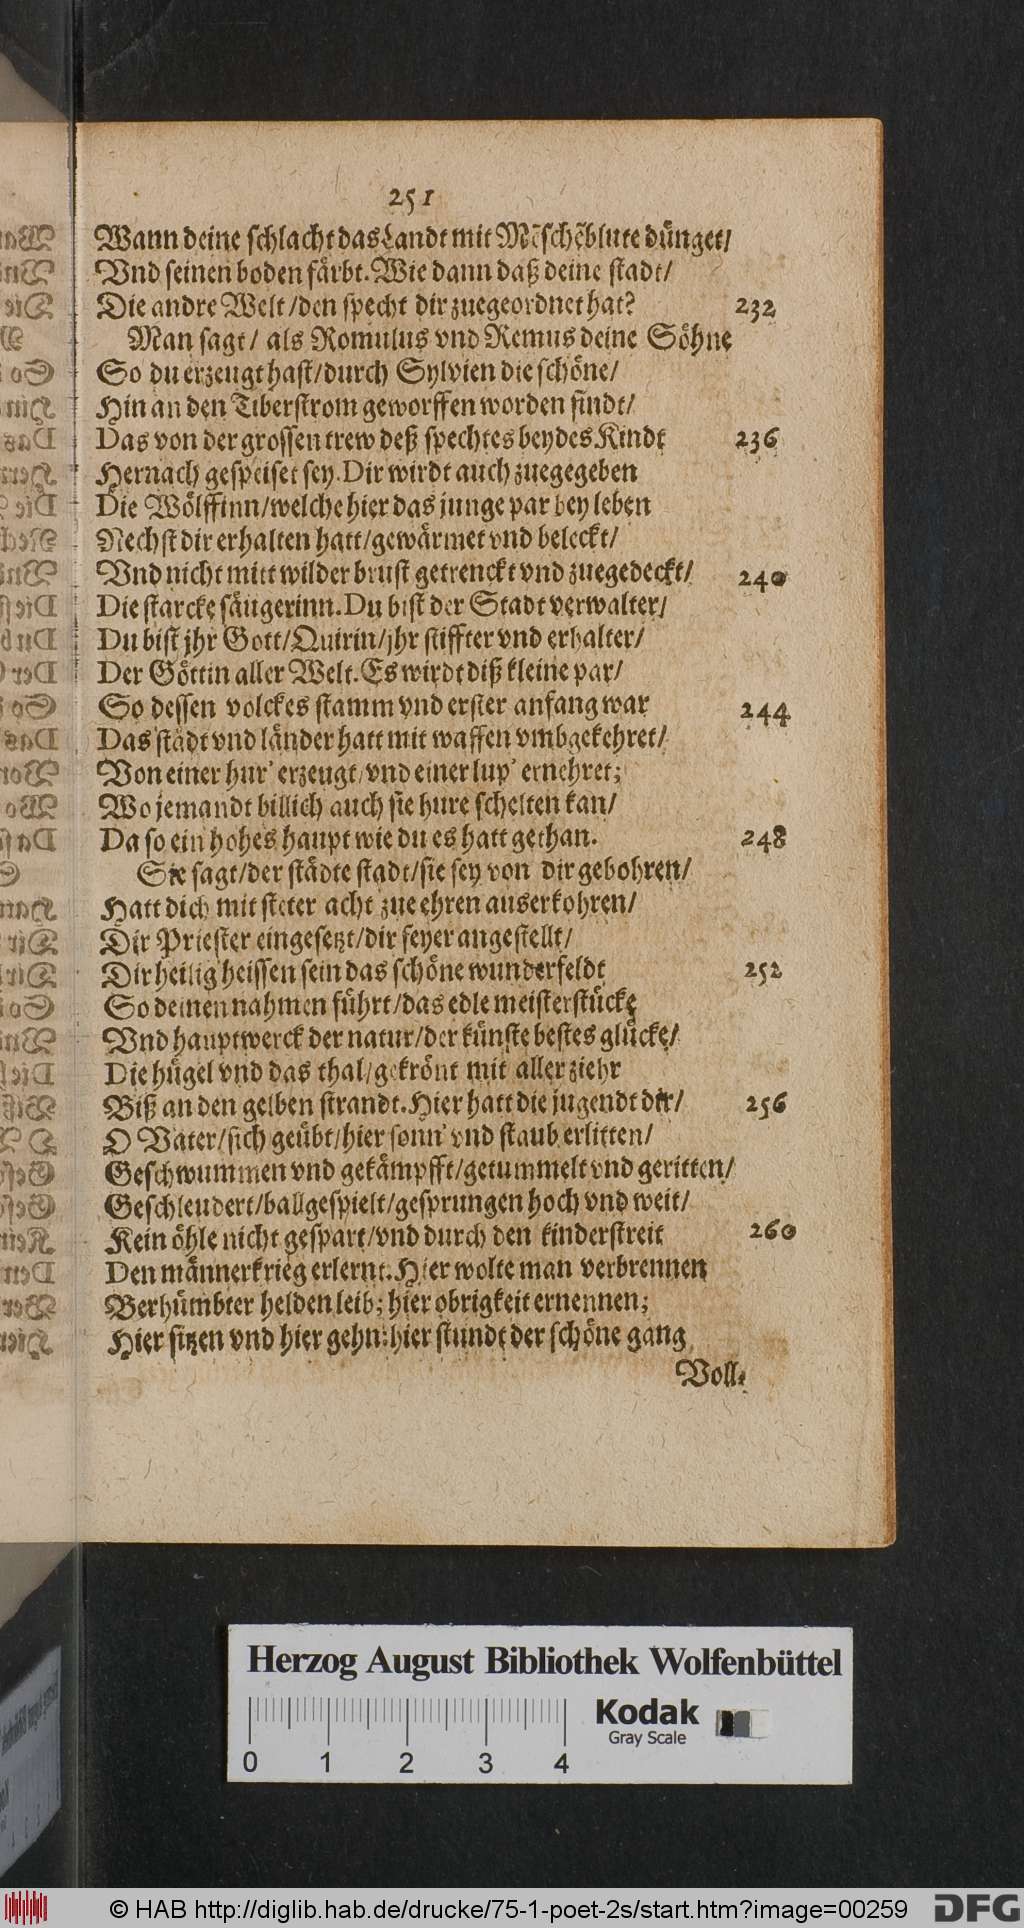 251
Wann deine schlacht das Landt mit Mēschēblute dünget/
Vnd seinen boden färbt. Wie dann daß deine stadt/
Die andre Welt/den specht dir zuegeordnet hat? 232
Man sagt/ als Romulus vnd Remus deine Söhne
So du erzeugt hast/durch Sylvien die schöne/
Hin an den Tiberstrom geworffen worden sindt/
Das von der grossen trew deß spechtes beydes Kindt 236
Hernach gespeiset sey. Dir wirdt auch zuegegeben
Die Wölffinn/welche hier das junge par bey leben
Nechst dir erhalten hatt/gewärmet vnd beleckt/
Vnd nicht mitt wilder brust getrenckt vnd zuegedeckt/ 240
Die starcke säugerinn. Du bist der Stadt verwalter/
Du bist jhr Gott/Quirin/jhr stiffter vnd erhalter/
Der Göttin aller Welt. Es wirdt diß kleine par/
So dessen volckes stamm vnd erster anfang war 244
Das städt vnd länder hatt mit waffen vmbgekehret/
Von einer hur' erzeugt/vnd einer lup' ernehret;
Wo jemandt billich auch sie hure schelten kan/
Da so ein hohes haupt wie du es hatt gethan. 248
Sie sagt/der städte stadt/sie sey von dir gebohren/
Hatt dich mit steter acht zue ehren auserkohren/
Dir Priester eingesetzt/dir feyer angestellt/
Dir heilig heissen sein das schöne wunderfeldt 252
So deinen nahmen führt/das edle meisterstücke
Vnd hauptwerck der natur/der künste bestes glücke/
Die hügel vnd das thal/gekrönt mit aller ziehr
Biß an den gelben strandt. Hier hatt die jugendt dir/ 256
O Vater/sich geübt/hier sonn' vnd staub erlitten/
Geschwummen vnd gekämpfft/getummelt vnd geritten/
Geschleudert/ballgespielt/gesprungen hoch vnd weit/
Kein öhle nicht gespart/vnd durch den kinderstreit 260
Den männerkrieg erlernt. Hier wolte man verbrennen
Berhümbter helden leib; hier obrigkeit ernennen;
Hier sitzen vnd hier gehn: hier stundt der schöne gang
Voll-
Herzog August Bibliothek Wolfenbüttel
Kodak
Gray Scale
0 1 2 3 4
© HAB http://diglib.hab.de/drucke/75-1-poet-2s/start.htm?image=00259
DFG